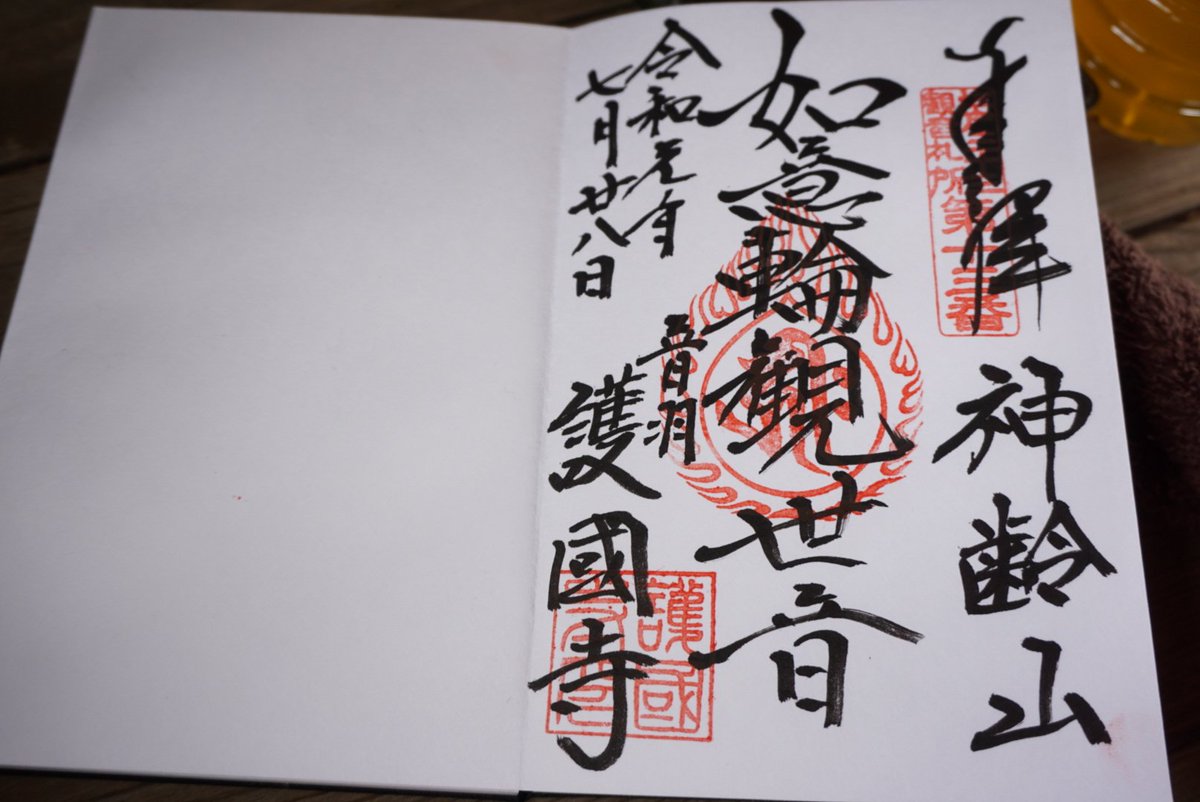 奉拝
神齢山
観音札所第十三番
如意輪觀世音
令和元年
七月廿八日
音羽
護國寺
護國